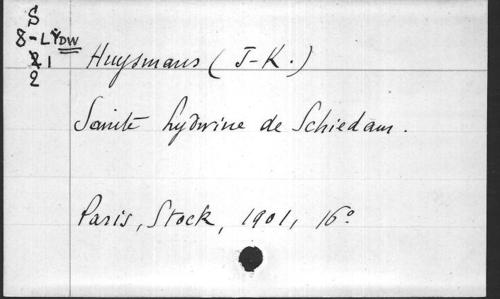 S
8-LYDW
21
2
Huysmans (J-K.)
Sainte Lydwine de Schiedam.
Paris, Stock, 1901, 16°